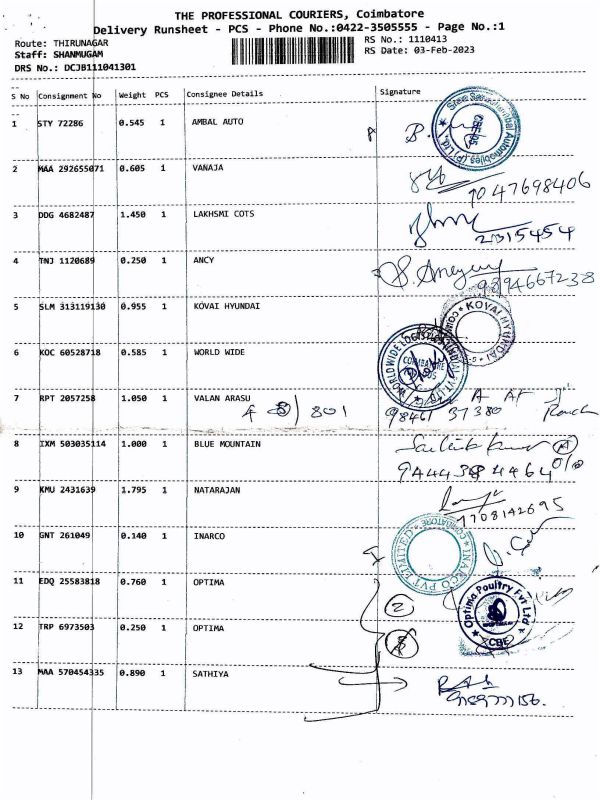 THE PROFESSIONAL COURIERS, Coimbatore
Delivery Runsheet - PCS - Phone No.:0422-3505555 - Page No.:1
Route: THIRUNAGAR RS No.: 1110413
Staff: SHANMUGAM RS Date: 03-Feb-2023
DRS No.: DCJB111041301
S No Consignment No Weight PCS Consignee Details Signature
1 STY 72286 0.545 1 AMBAL AUTO
B.
2 MAA 292655071 0.605 1 VANAJA
7047698406
3 DDG 4682487 1.450 1 LAKHSMI COTS
2315454
4 TNJ 1120689 0.250 1 ANCY
9894667238
5 SLM 313119130 0.955 1 KOVAI HYUNDAI
KOVAI HYUNDAI
6 KOC 60528718 0.585 1 WORLD WIDE
COIMBATORE
7 RPT 2057258 1.050 1 VALAN ARASU
801
98461 37380
8 IXM 503035114 1.000 1 BLUE MOUNTAIN
9 KMU 2431639 1.795 1 NATARAJAN
7708142695
10 GNT 261049 0.140 1 INARCO
INARCO PVT LIMITED
COIMBATORE
11 EDQ 25583818 0.760 1 OPTIMA
2
Optima Poultry Pvt Ltd
CBE
12 TRP 6973503 0.250 1 OPTIMA
13 MAA 570454335 0.890 1 SATHIYA